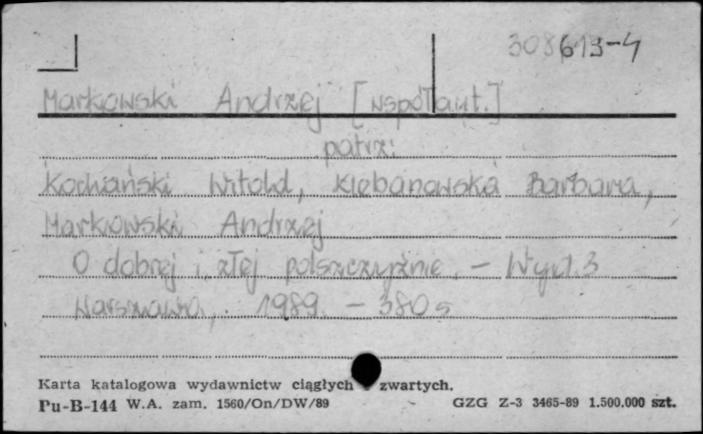 308613-4
Markowski Andrzej [współaut.]
patrz:
Kochański Witold, Klebanowska Barbara,
Markowski Andrzej
O dobrej i złej polszczyźnie. – Wyd. 3
Warszawa, 1989. – 380 s
Karta katalogowa wydawnictw ciągłych zwartych.
Pu-B-144 W.A. zam. 1560/On/DW/89 GZG Z-3 3465-89 1.500.000 szt.